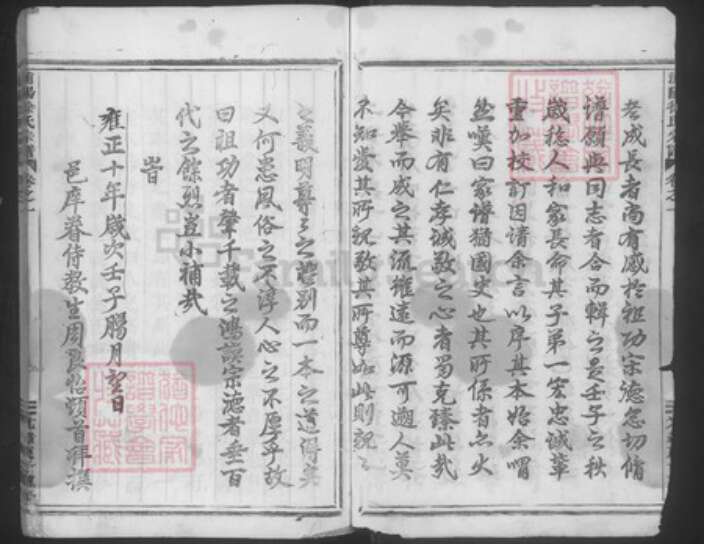 老成長者尚有感於祖功宗德急切脩
譜願與同志者合而輯之是壬子之秋
歲稔人和家長命其子弟一宏忠誠輩
重加校訂因請余言以序其本始余喟
然嘆曰家譜猶國史也其所係者大
矣非有仁孝誠敬之心者曷克臻此哉
今舉而成之其流雖遠而源可遡人莫
不知愛其所親敬其所尊如此則親々
之義明尊々之禮別而一本之道得矣
又何患風俗之不淳人心之不厚乎故
曰祖功者肇千載之鴻 宗德者垂百
代之餘烈豈小補哉
旹
雍正十年歲次壬子臘月望日
邑庠眷侍教生周 頓首拜撰